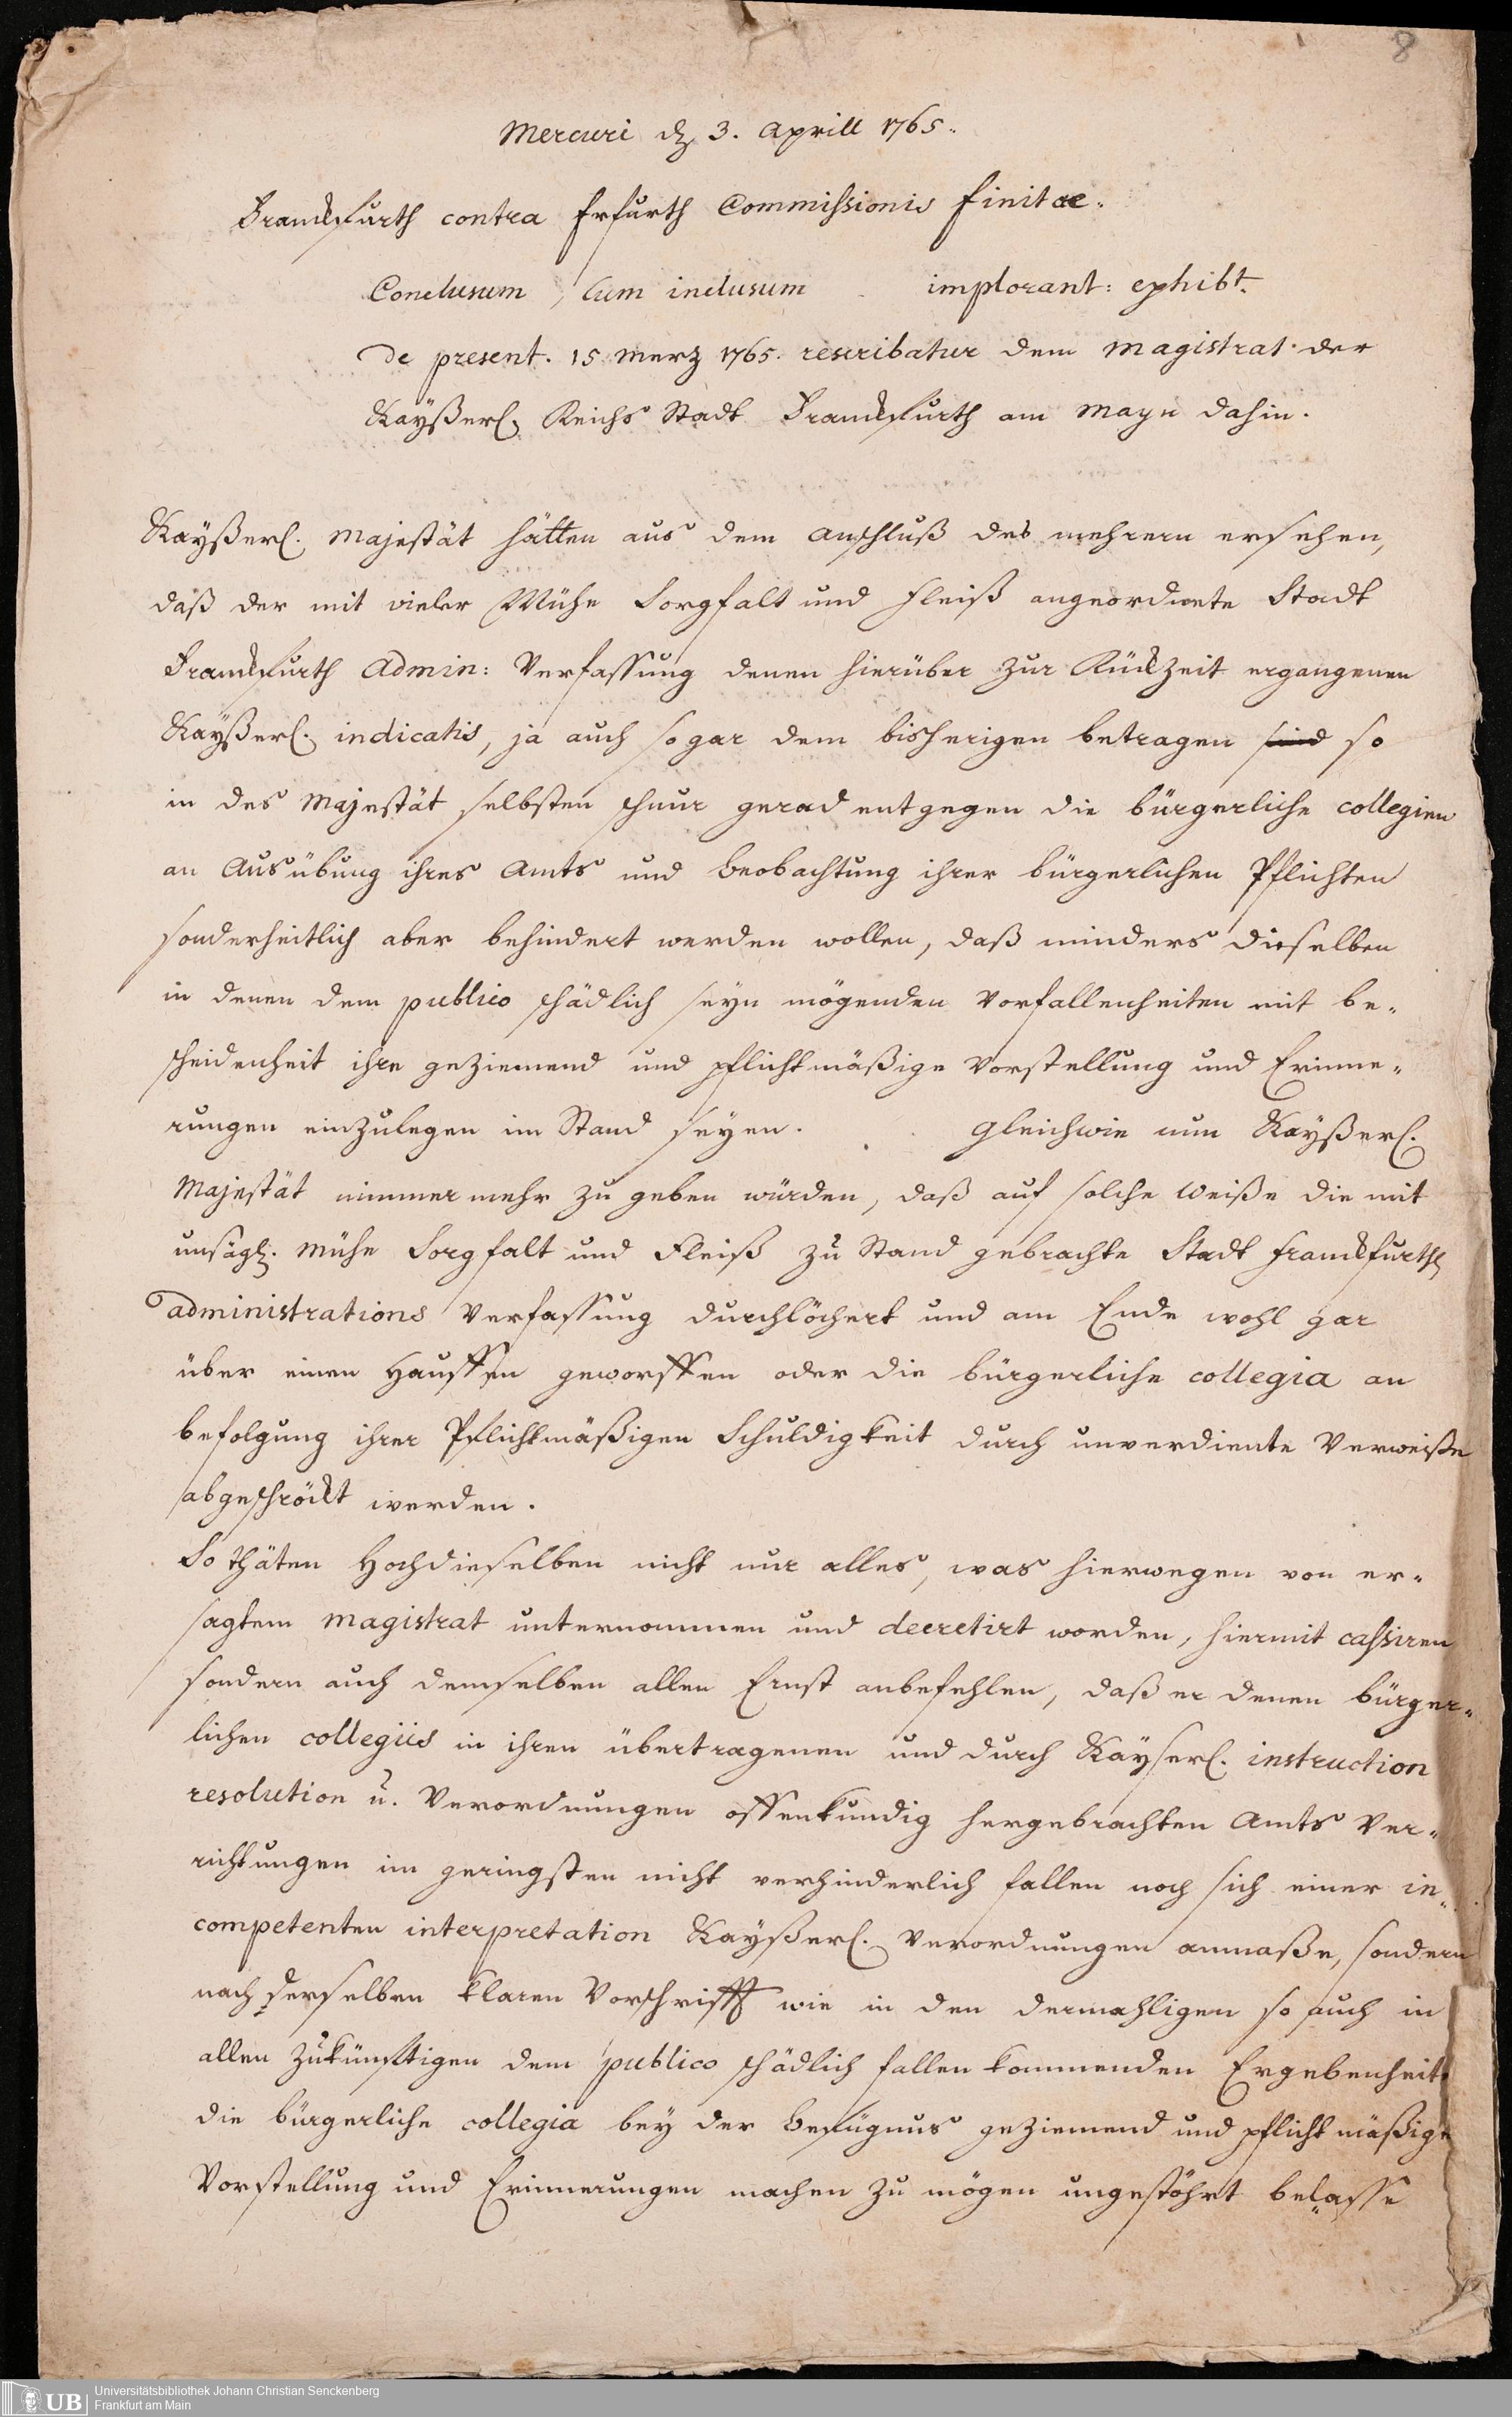 8
Mercuri dz 3. Aprill 1765.
Franckfurth contra Erfurth Commissionis finitae.
Conclusum, Cum inclusum implorant: exhibt.
de present. 15 Merz 1765. rescribatur dem Magistrat der
Kayßerl. Reichs Stadt Franckfurth am Mayn dahin.
Kayßerl. Majestät hätten aus dem Anschluß des mehrern ersehen,
daß der mit vieler Mühe Sorgfalt und Fleiß angeordnete Stadt
Franckfurth Admin: Verfassung denen hierüber zur Rückzeit ergangenen
Kayßerl. indicatis, ja auch sogar dem bisherigen betragen sind so
in des Majestät selbsten schnur gerad entgegen die bürgerliche collegien
an Ausübung ihres Amts und Beobachtung ihrer bürgerlichen Pflichten
sonderheitlich aber behindert werden wollen, daß minders dieselben
in denen dem publico schädlich seyn mögenden Vorfallenheiten mit be-
scheidenheit ihre geziemend und pflichtmäßige Vorstellung und Erinne-
rungen einzulegen im Stand seyen. Gleichwie nun Kayßerl.
Majestät nimmermehr zu geben würden, daß auf solche Weiße die mit
unsägl. Mühe Sorgfalt und Fleiß zu Stand gebrachte Stadt Franckfurth
administrations Verfassung durchlöchert und am Ende wohl gar
über einen Hauffen geworffen oder die bürgerliche collegia an
befolgung ihrer Pflichtmäßigen Schuldigkeit durch unverdiente Verweiße
abgeschröckt werden.
So thäten Hochdieselben nicht nur alles, was hierwegen von er-
sagtem Magistrat unternommen und decretirt worden, hiermit cassiren
sondern auch demselben allen Ernst anbefehlen, daß er denen bürger-
lichen collegiis in ihren übertragenen und durch Kayserl. instruction
resolution u. Verordnungen offenkundig hergebrachten Amts Ver-
richtungen im geringsten nicht verhinderlich fallen noch sich einer in-
competenten interpretation Kayßerl. Verordnungen anmaße, sondern
nach derselben klaren Vorschrifft wie in den dermahligen so auch in
allen zukünftigen dem publico schädlich fallen kommenden Ergebenheit
die bürgerliche collegia bey der Befugnus geziemend und pflichtmäßige
Vorstellung und Erinnerungen machen zu mögen ungestöhrt belasse
UB Universitätsbibliothek Johann Christian Senckenberg
Frankfurt am Main